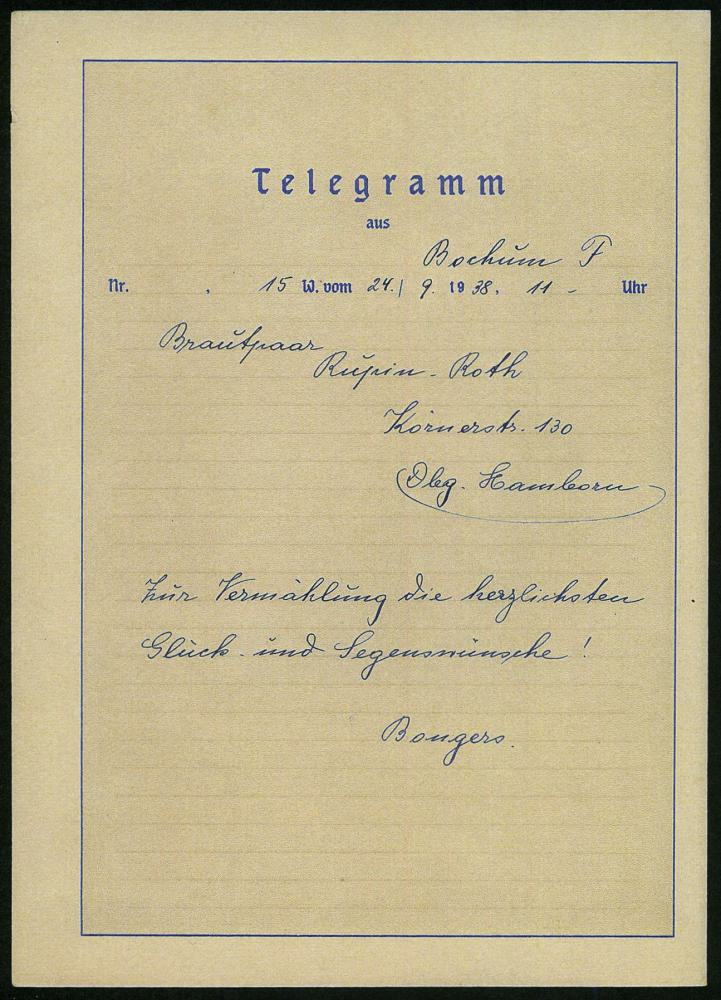 Telegramm
aus
Bochum F
Nr. , 15 W. vom 24./9. 1938, 11 - Uhr
Brautpaar
Rupin - Roth
Körnerstr. 130
Dbg. Hamborn
Zur Vermählung die herzlichsten
Glück- und Segenswünsche!
Bongers.